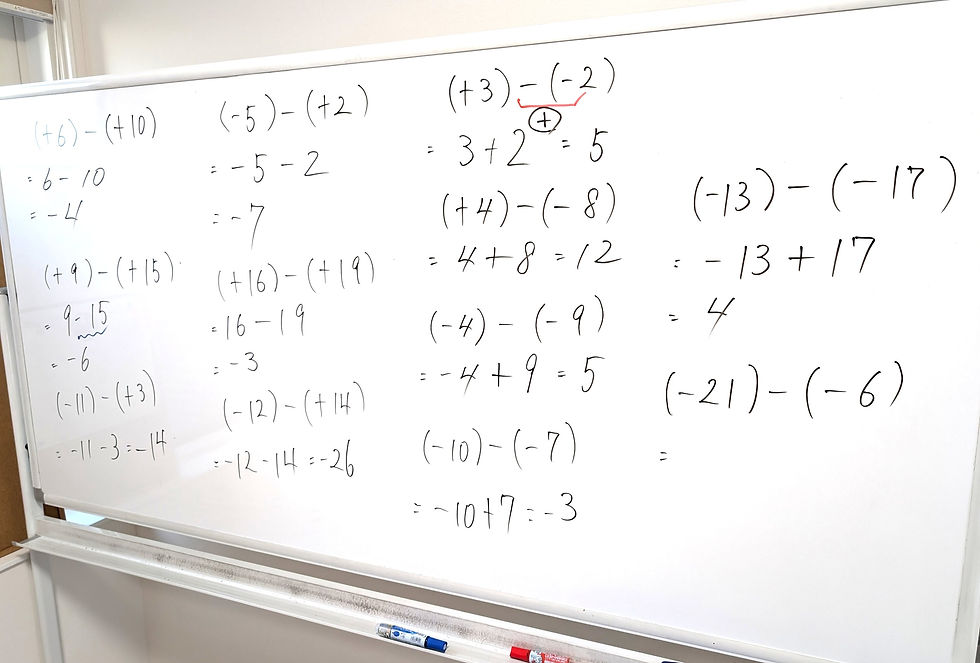 (+6)-(+10)
= 6-10
= -4
(+9)-(+15)
= 9-15
= -6
(-11)-(+3)
= -11-3=-14
(-5)-(+2)
= -5-2
= -7
(+16)-(+19)
= 16-19
= -3
(-12)-(+14)
= -12-14=-26
(+3)-(-2)
+
= 3+2=5
(+4)-(-8)
= 4+8=12
(-4)-(-9)
= -4+9=5
(-10)-(-7)
= -10+7=-3
(-13)-(-17)
= -13+17
= 4
(-21)-(-6)
=